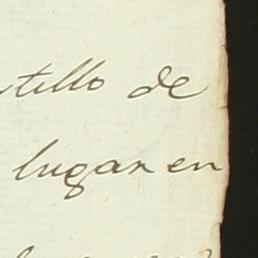 tillo de
lugar en